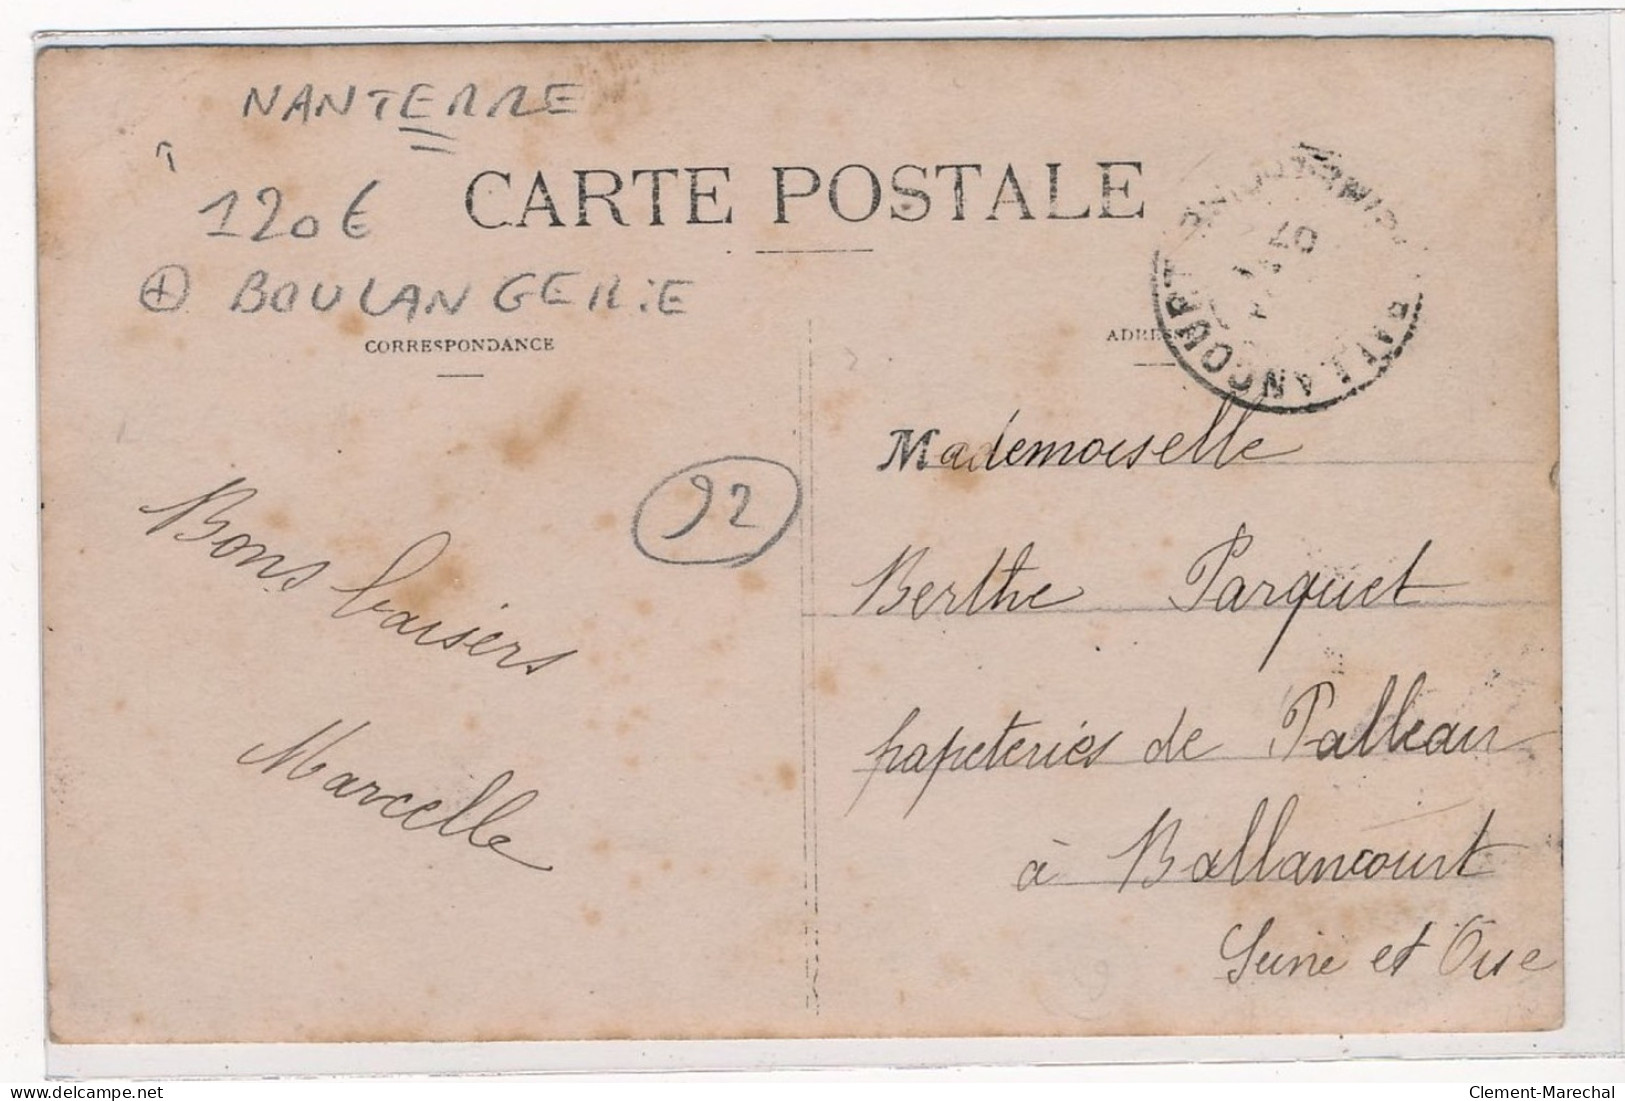 NANTERRE
120€
+ BOULANGERIE
CARTE POSTALE
CORRESPONDANCE
ADRESSE
BALLANCOURT
07
92
Bons baisers
Marcelle
Mademoiselle
Berthe Parquet
papeteries de Palleau
à Ballancourt
Seine et Oise
delcampe.net
Clement-Marechal